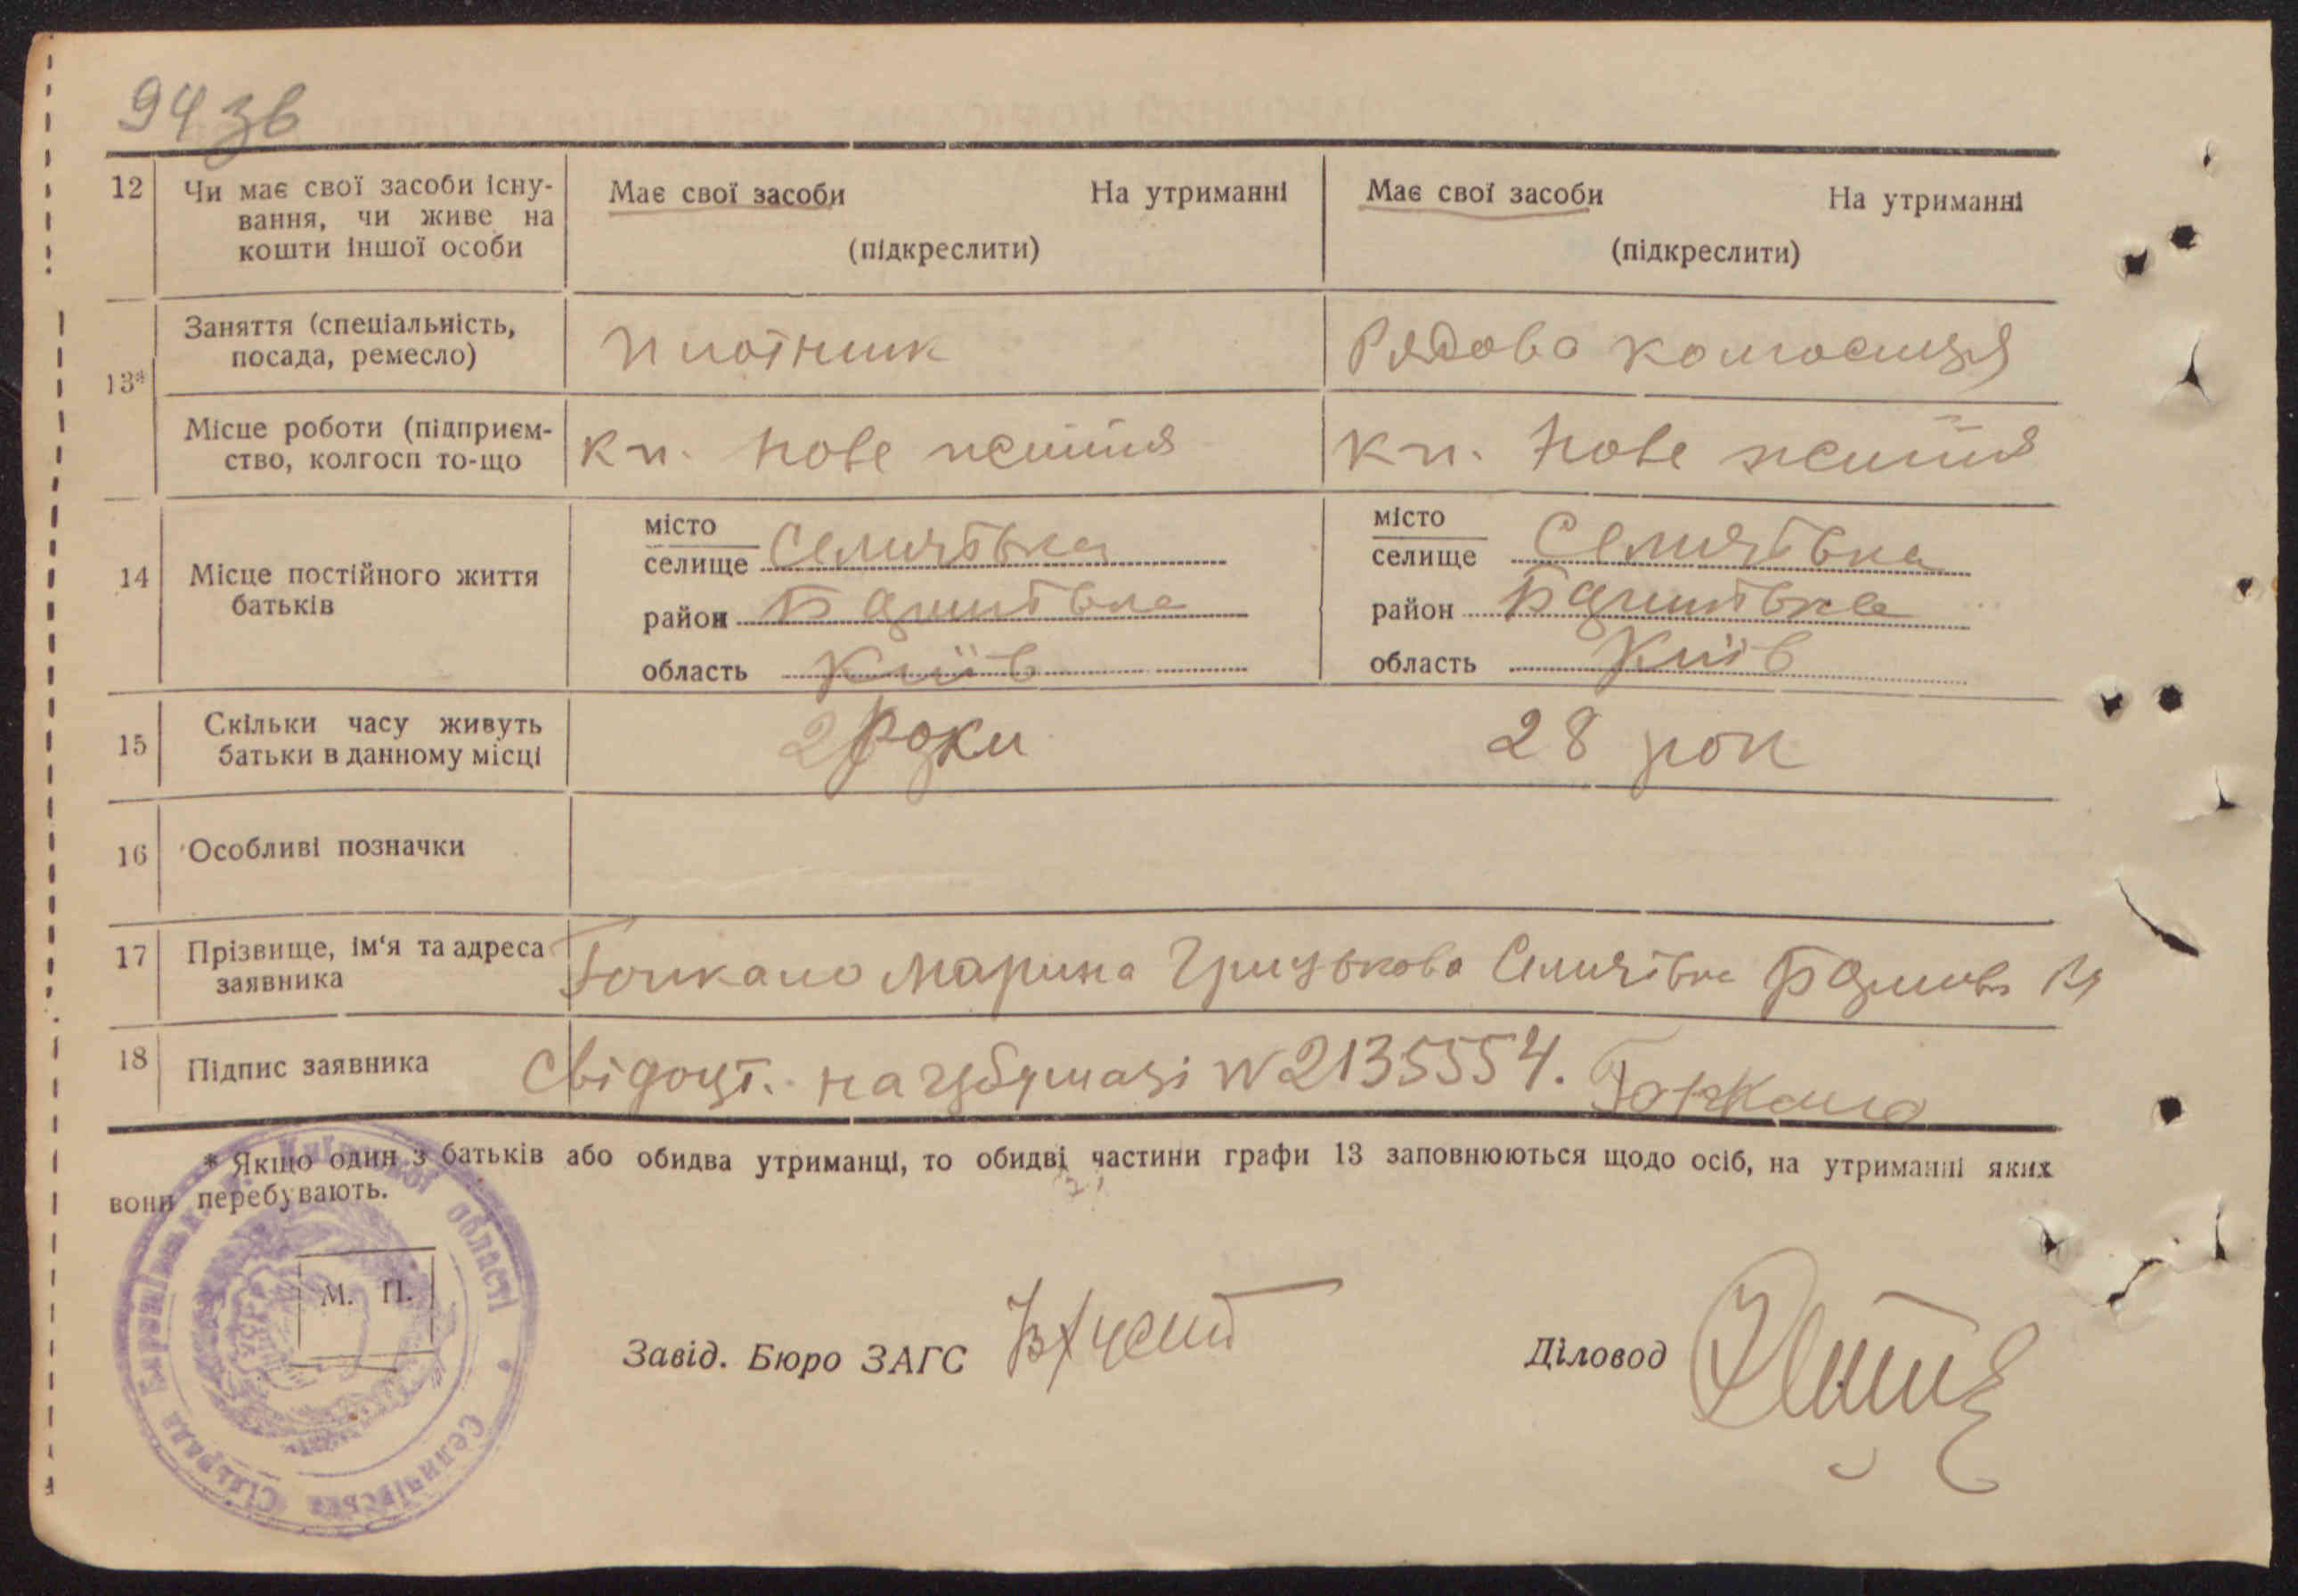 94 зв
12 Чи має свої засоби існу-
вання, чи живе на
кошти іншої особи
Має свої засоби На утриманні
(підкреслити)
Має свої засоби На утриманні
(підкреслити)
13*
Заняття (спеціальність,
посада, ремесло)
Плотник
Рядова колгосниця
Місце роботи (підприєм-
ство, колгосп то-що
Кп. Нове життя
Кп. Нове життя
14 Місце постійного життя
батьків
місто
селище Селичівка
район Баришівка
область Київ
місто
селище Селичівка
район Баришівка
область Київ
15 Скільки часу живуть
батьки в данному місці
2 роки
28 рок
16 Особливі позначки
17 Прізвище, ім‘я та адреса
заявника
Марина Грицькова Селичівка Баришів
18 Підпис заявника
Свідоцт. на гербумазі N 2135554.
* Якщо один з батьків або обидва утриманці, то обидві частини графи 13 заповнюються щодо осіб, на утриманні яких
вони перебувають.
М. П.
Київської області
Селичівська Сільрада
УСРР
Завід. Бюро ЗАГС
Діловод